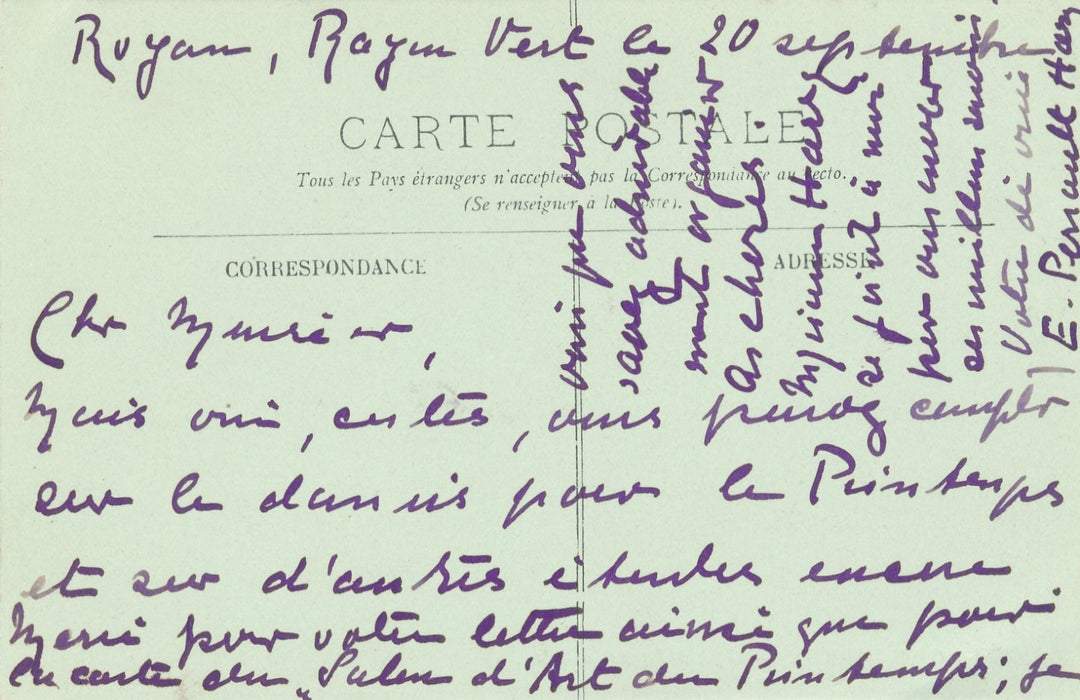 Royan, Rayon Vert le 20 septembre
CARTE POSTALE
Tous les Pays étrangers n'acceptent pas la Correspondance au recto.
(Se renseigner à la Poste).
CORRESPONDANCE
ADRESSE
Cher Monsieur,
Mais oui, certes, vous pouvez compter
sur le danois pour le Printemps
et sur d'autres études encore
Merci pour votre lettre ainsi que pour
la carte du „Salon d'Art du Printemps; je
vois que vous
savez admirable
ment organiser
les choses.
Monsieur Hare
se joint à moi
pour vous envoyer
ses meilleurs
Votre
E. Perrault Harry